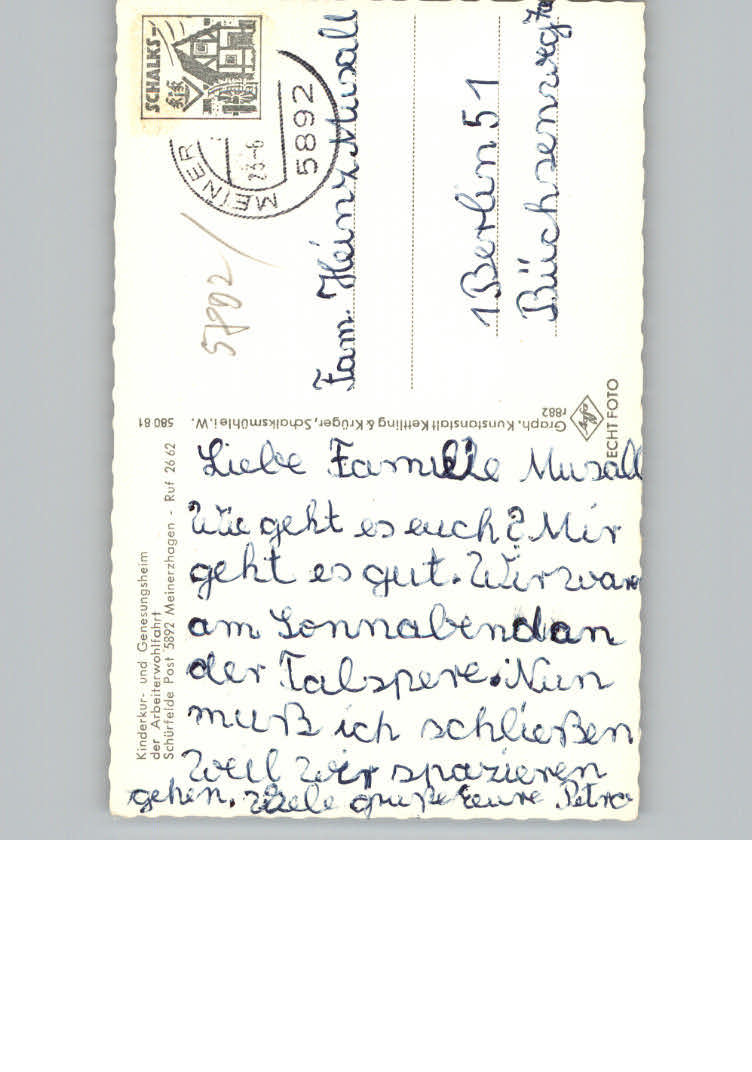 Kinderkur- und Genesungsheim
der Arbeiterwohlfahrt
Schürfelde Post 5892 Meinerzhagen - Ruf 26 62
Liebe Familie Musall
Wie geht es euch? Mir
geht es gut. Wir waren
am Sonnabend an
der Talspere. Nun
muß ich schließen
weil wir spazieren
gehen. Viele gruße Eeure Petra
580 81
Graph. Kunstanstalt Kettling & Krüger, Schalksmühle i. W.
r882
ECHT FOTO
SCHALKS-
MEINER
23.-6
5892
5802/
Fam. Heinz Musall
1 Berlin 51
Büchsenweg